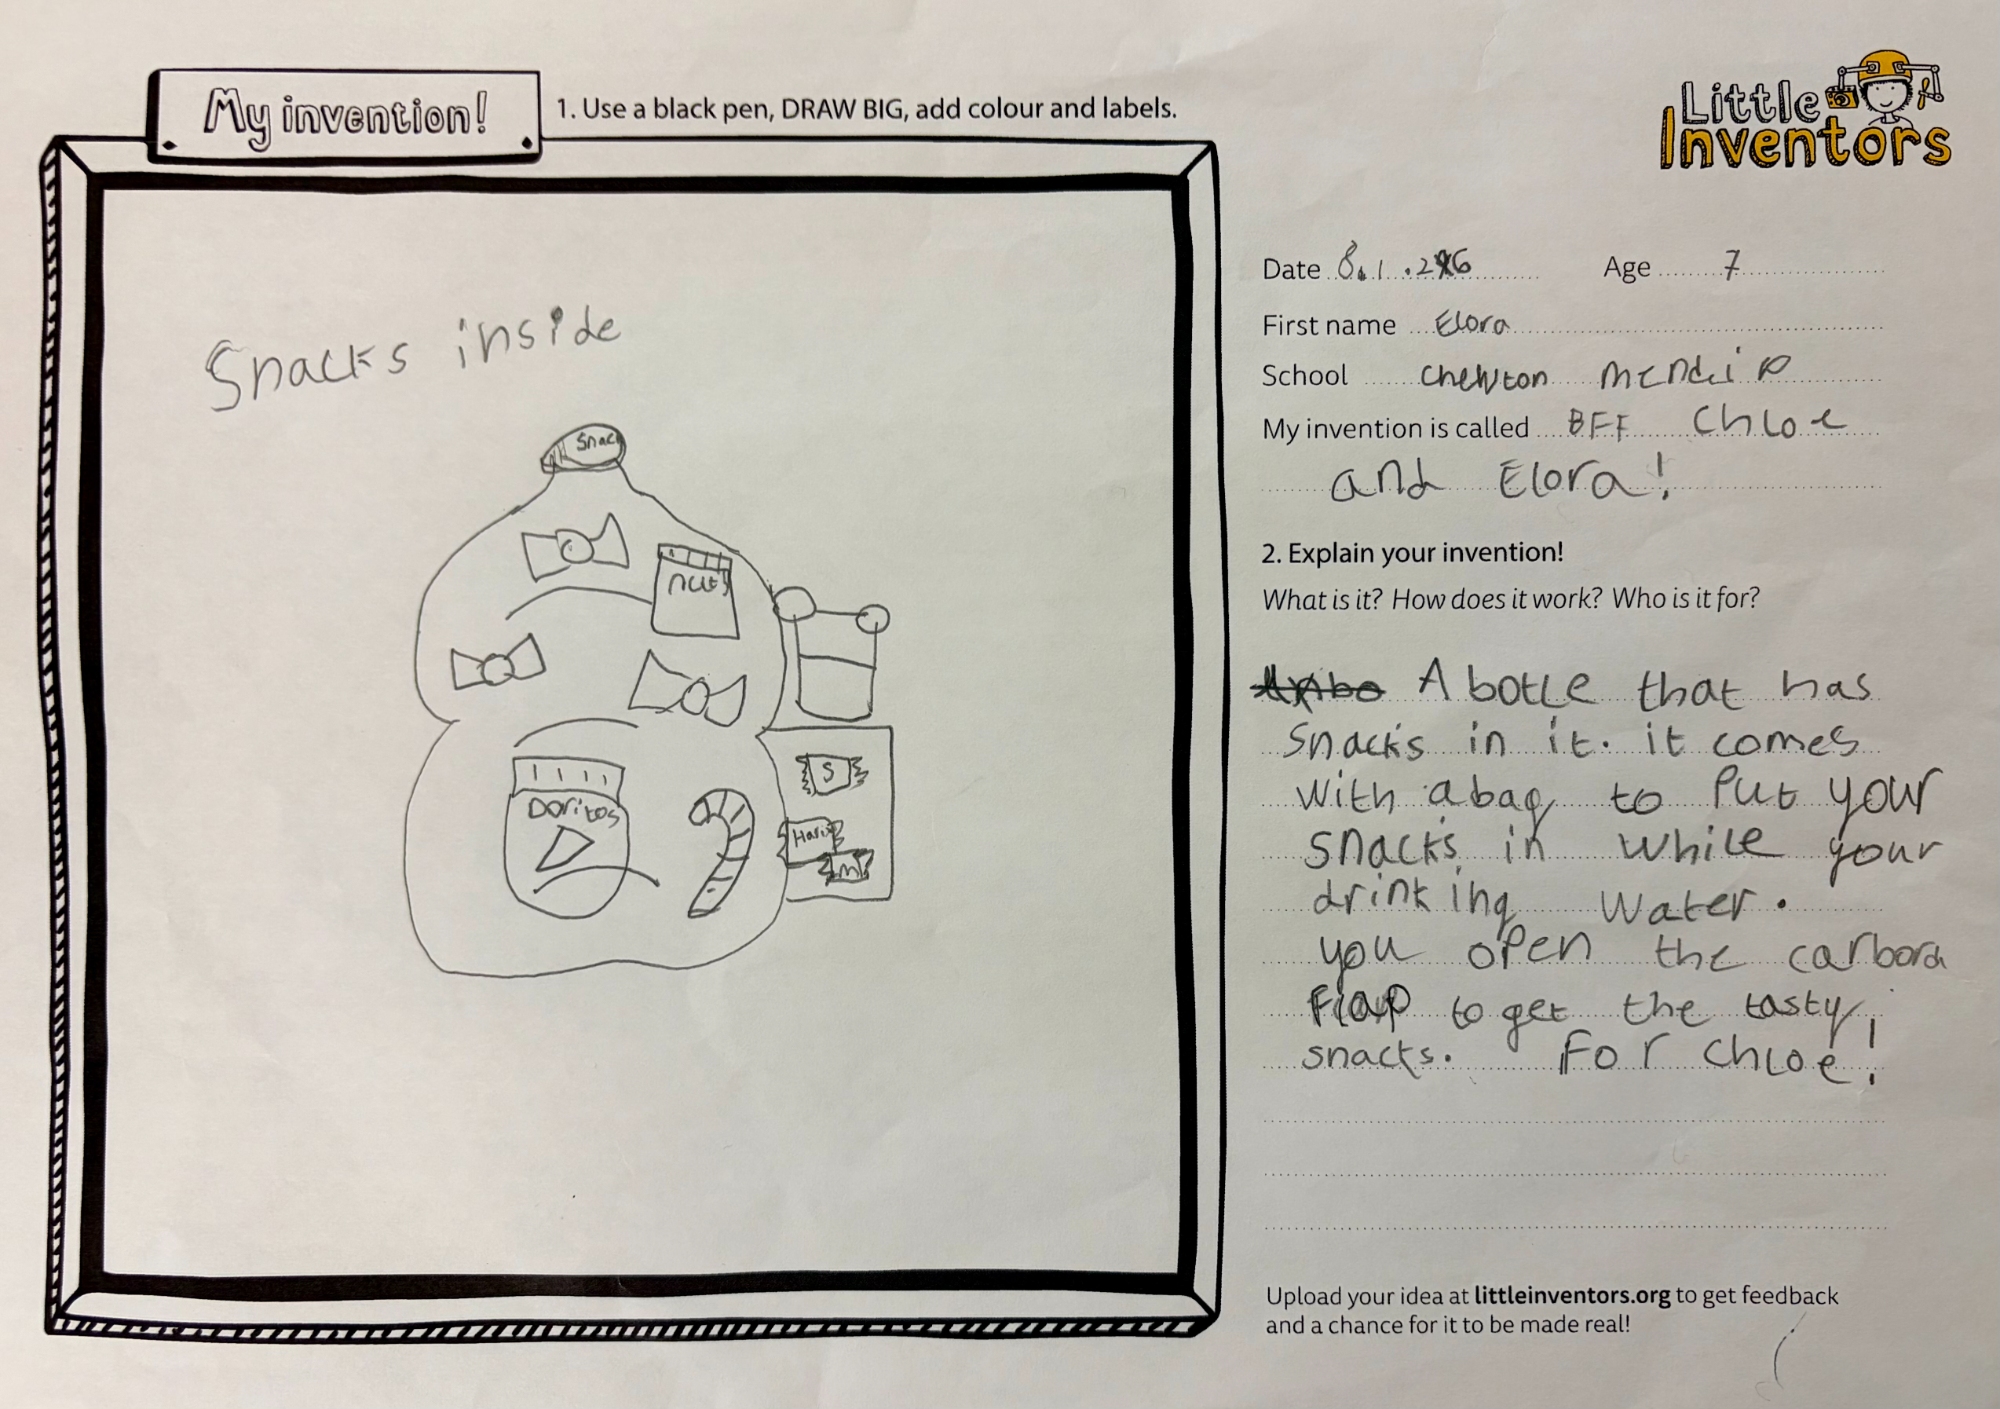 My invention!
1. Use a black pen, DRAW BIG, add colour and labels.
Little
Inventors
Snacks inside
Snac
nuts
Doritos
S
Hari
M
Date 8.1.26 Age 7
First name Elora
School Chewton Mendip
My invention is called BFF Chloe
and Elora!
2. Explain your invention!
What is it? How does it work? Who is it for?
A botle that has
snacks in it. it comes
with a bag to Put your
snacks in while your
drinking water.
you open the carbord
Flap to get the tasty
snacks. For Chloe!
Upload your idea at littleinventors.org to get feedback
and a chance for it to be made real!